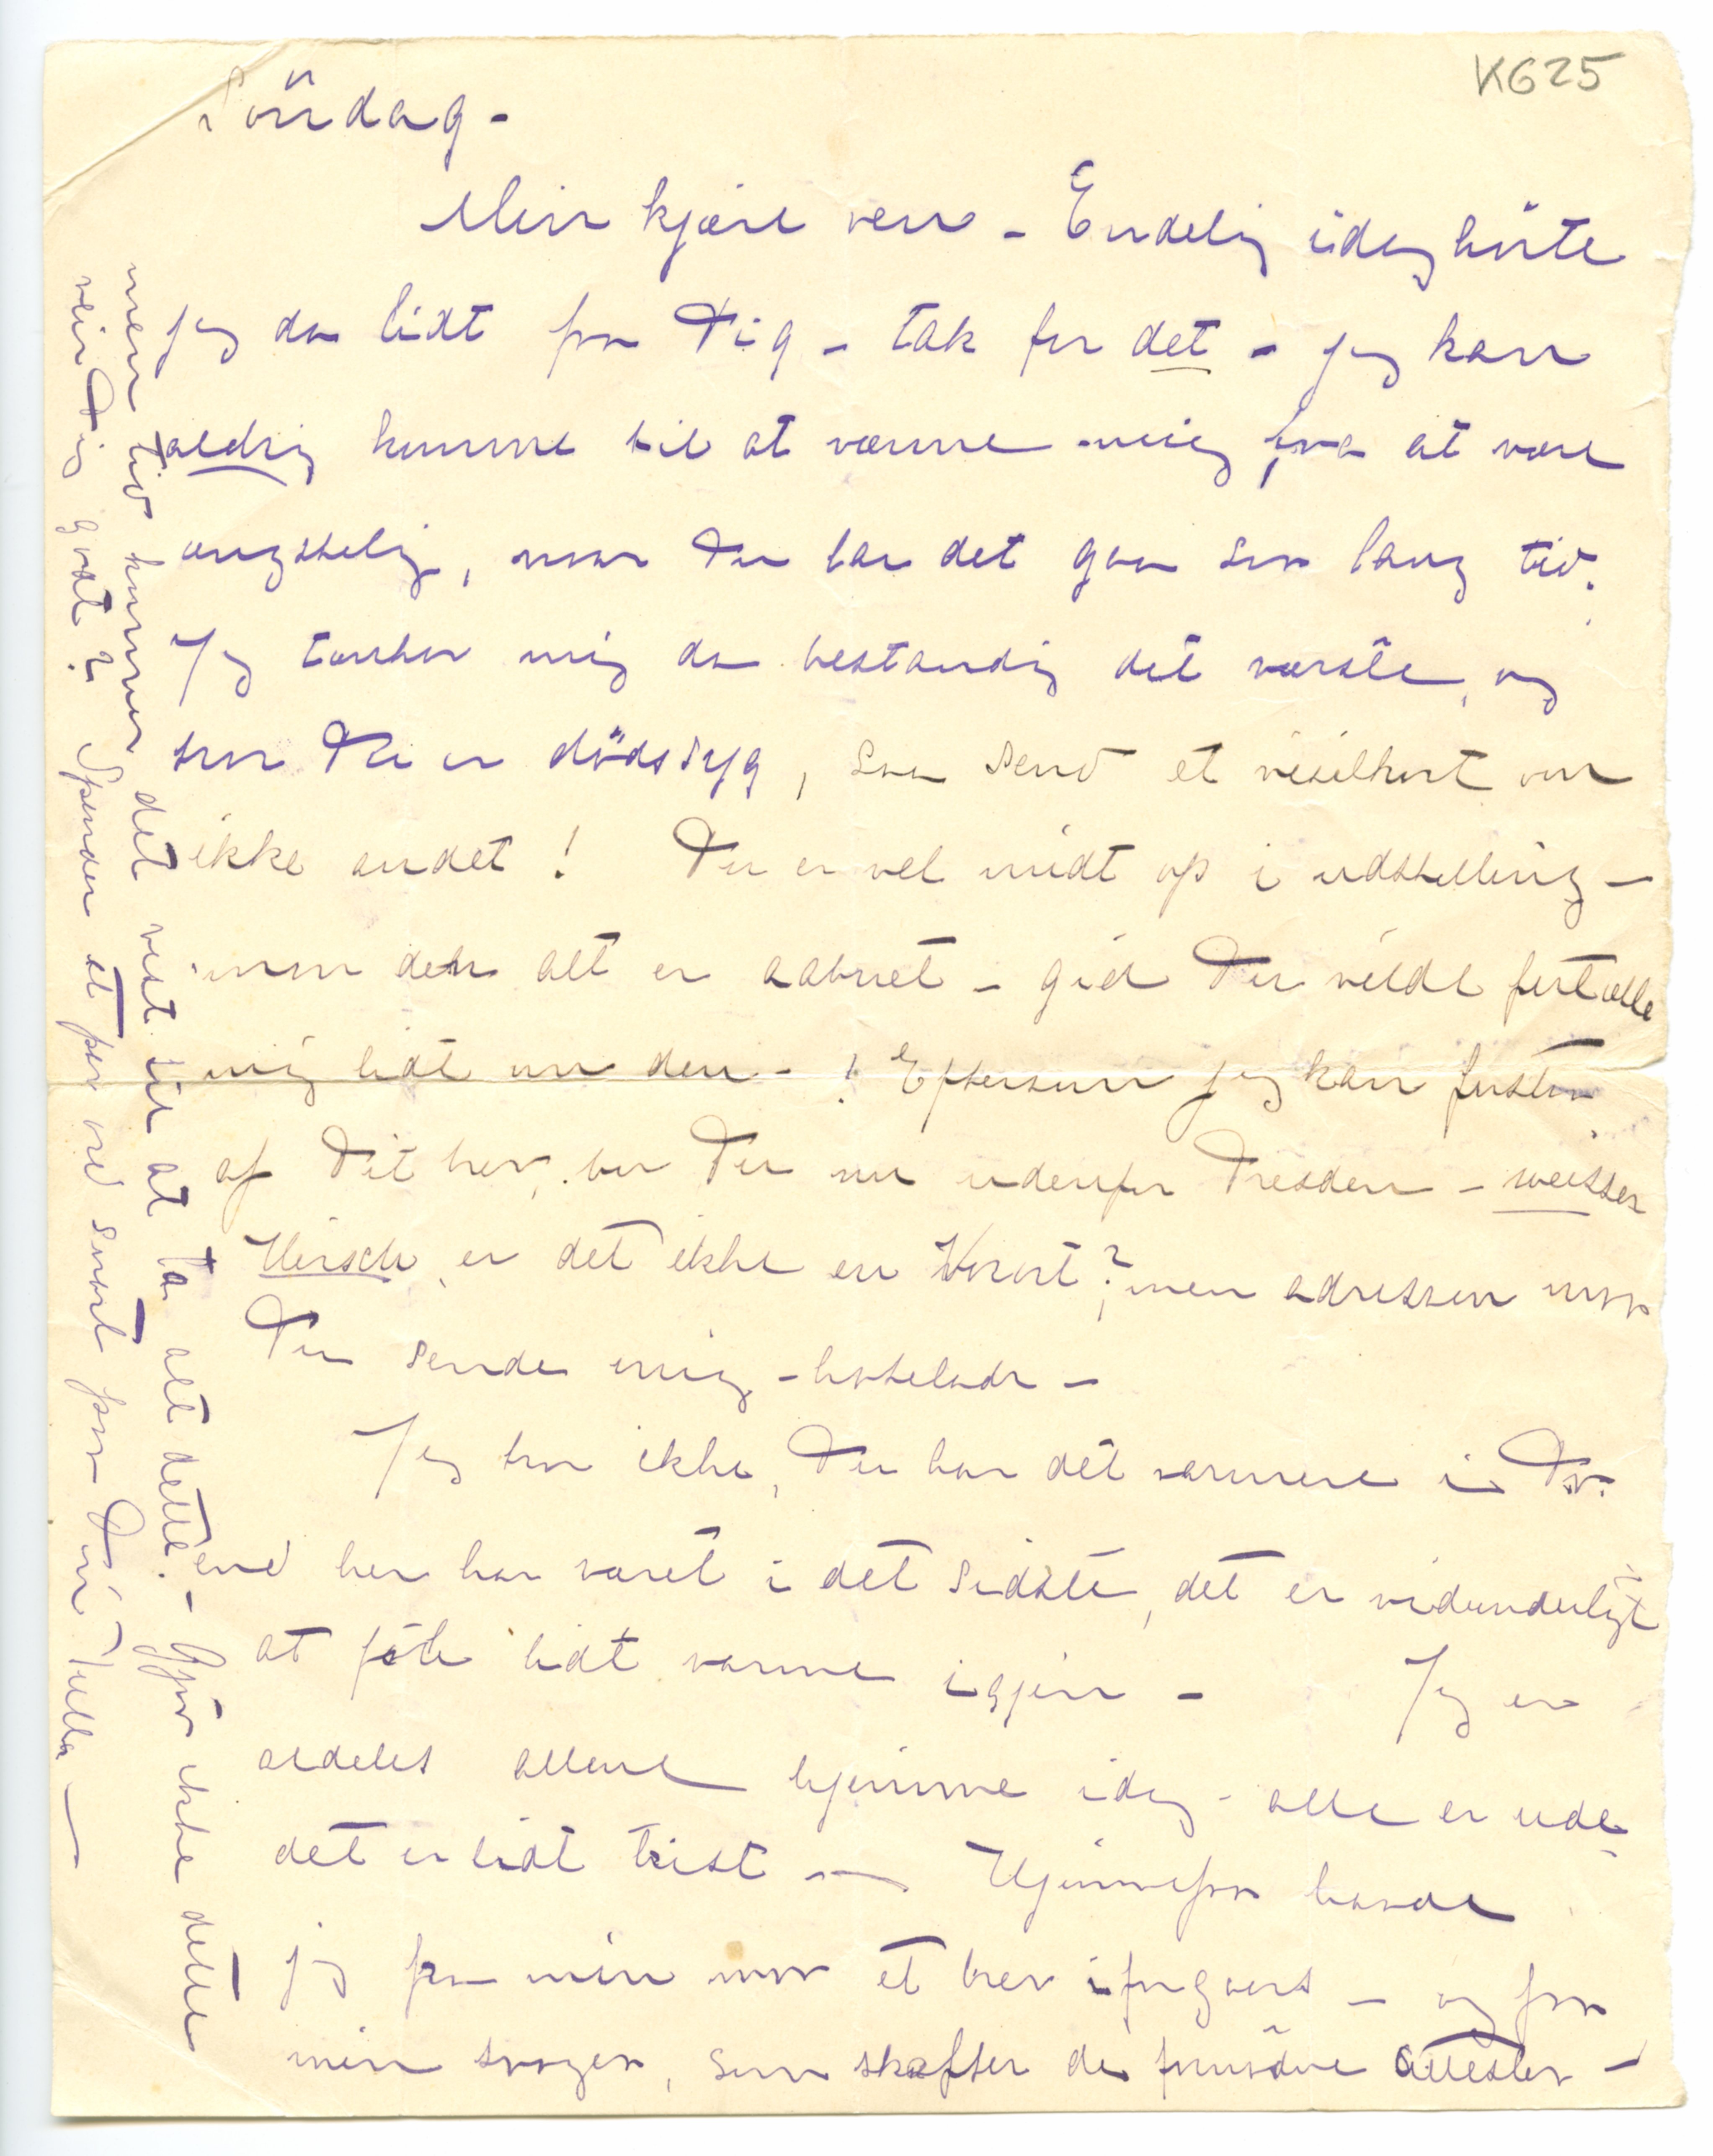 KG25
Söndag -
Min kjære ven - Endelig idag hörte
jeg da lidt fra Dig - tak for det - jeg kan
aldrig komme til at vænne mig fra at være
ængstelig, naar Du lar det gaa saa lang tid.
Jeg tænker mig da bestandig det værste, og
tror Du er dödssyg, saa send et visitkort om
ikke andet! Du er vel midt op i udstilling -
om den alt er aabnet - gid Du vilde fortælle
mig lidt om den - ! Eftersom jeg kan forstaa
af Dit brev, bor Du nu udenfor Dresden - weisser
Hirsch, er det ikke en Vorort? men adressen maa
Du sende mig - hoteladr -
Jeg tror ikke, Du har det varmere i Dr.
end her har været i det sidste, det er vidunderligt
at föle lidt varme igjen - Jeg er
aldeles allene hjemme idag - alle er ude -
det er lidt trist - Hjemmefra havde
jeg fra min mor et brev iforgaars - og fra
min svoger, som skaffer de fornödne attester -
men tid kommer det vist til at ta alt dette. - Gjör ikke dette
veir Dig godt? Spender et par ord snart fra Din Tulla -